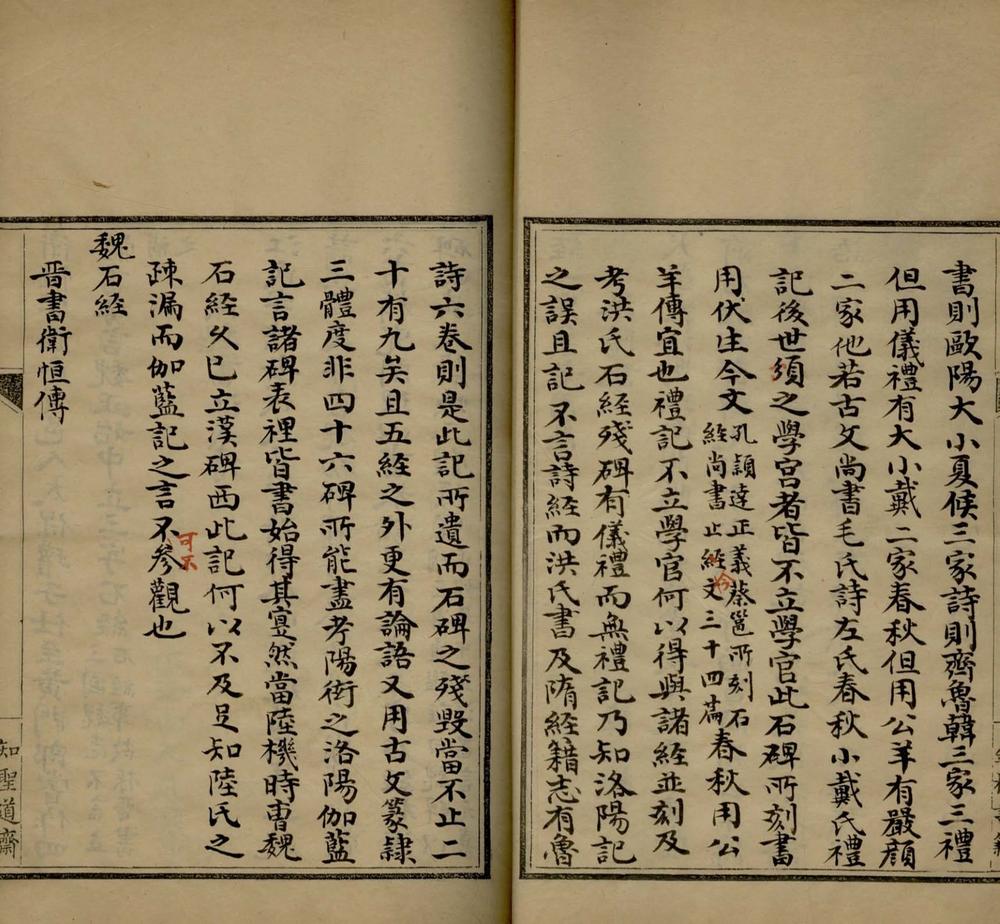 書則歐陽大小夏侯三家詩則齊魯韓三家三禮
但用儀禮有大小戴二家春秋但用公羊有嚴顏
二家他若古文尚書毛氏詩左氏春秋小戴氏禮
記後世須之學宮者皆不立學官此石碑所刻書
用伏生今文孔穎達正義蔡邕所刻石經尚書止經文三十四篇春秋用公
今
羊傳宜也禮記不立學官何以得與諸經並刻及
考洪氏石經殘碑有儀禮而無禮記乃知洛陽記
之誤且記不言詩經而洪氏書及隋經籍志有魯
詩六卷則是此記所遺而石碑之殘毀當不止二
十有九矣且五經之外更有論語又用古文篆隸
三體度非四十六碑所能盡考陽衒之洛陽伽藍
記言諸碑表裡皆書始得其寔然當陸機時曹魏
石經久已立漢碑西此記何以不及足知陸氏之
疎漏而伽藍記之言不參觀也
可不
魏石經
晋書衛恒傳
知聖道齋